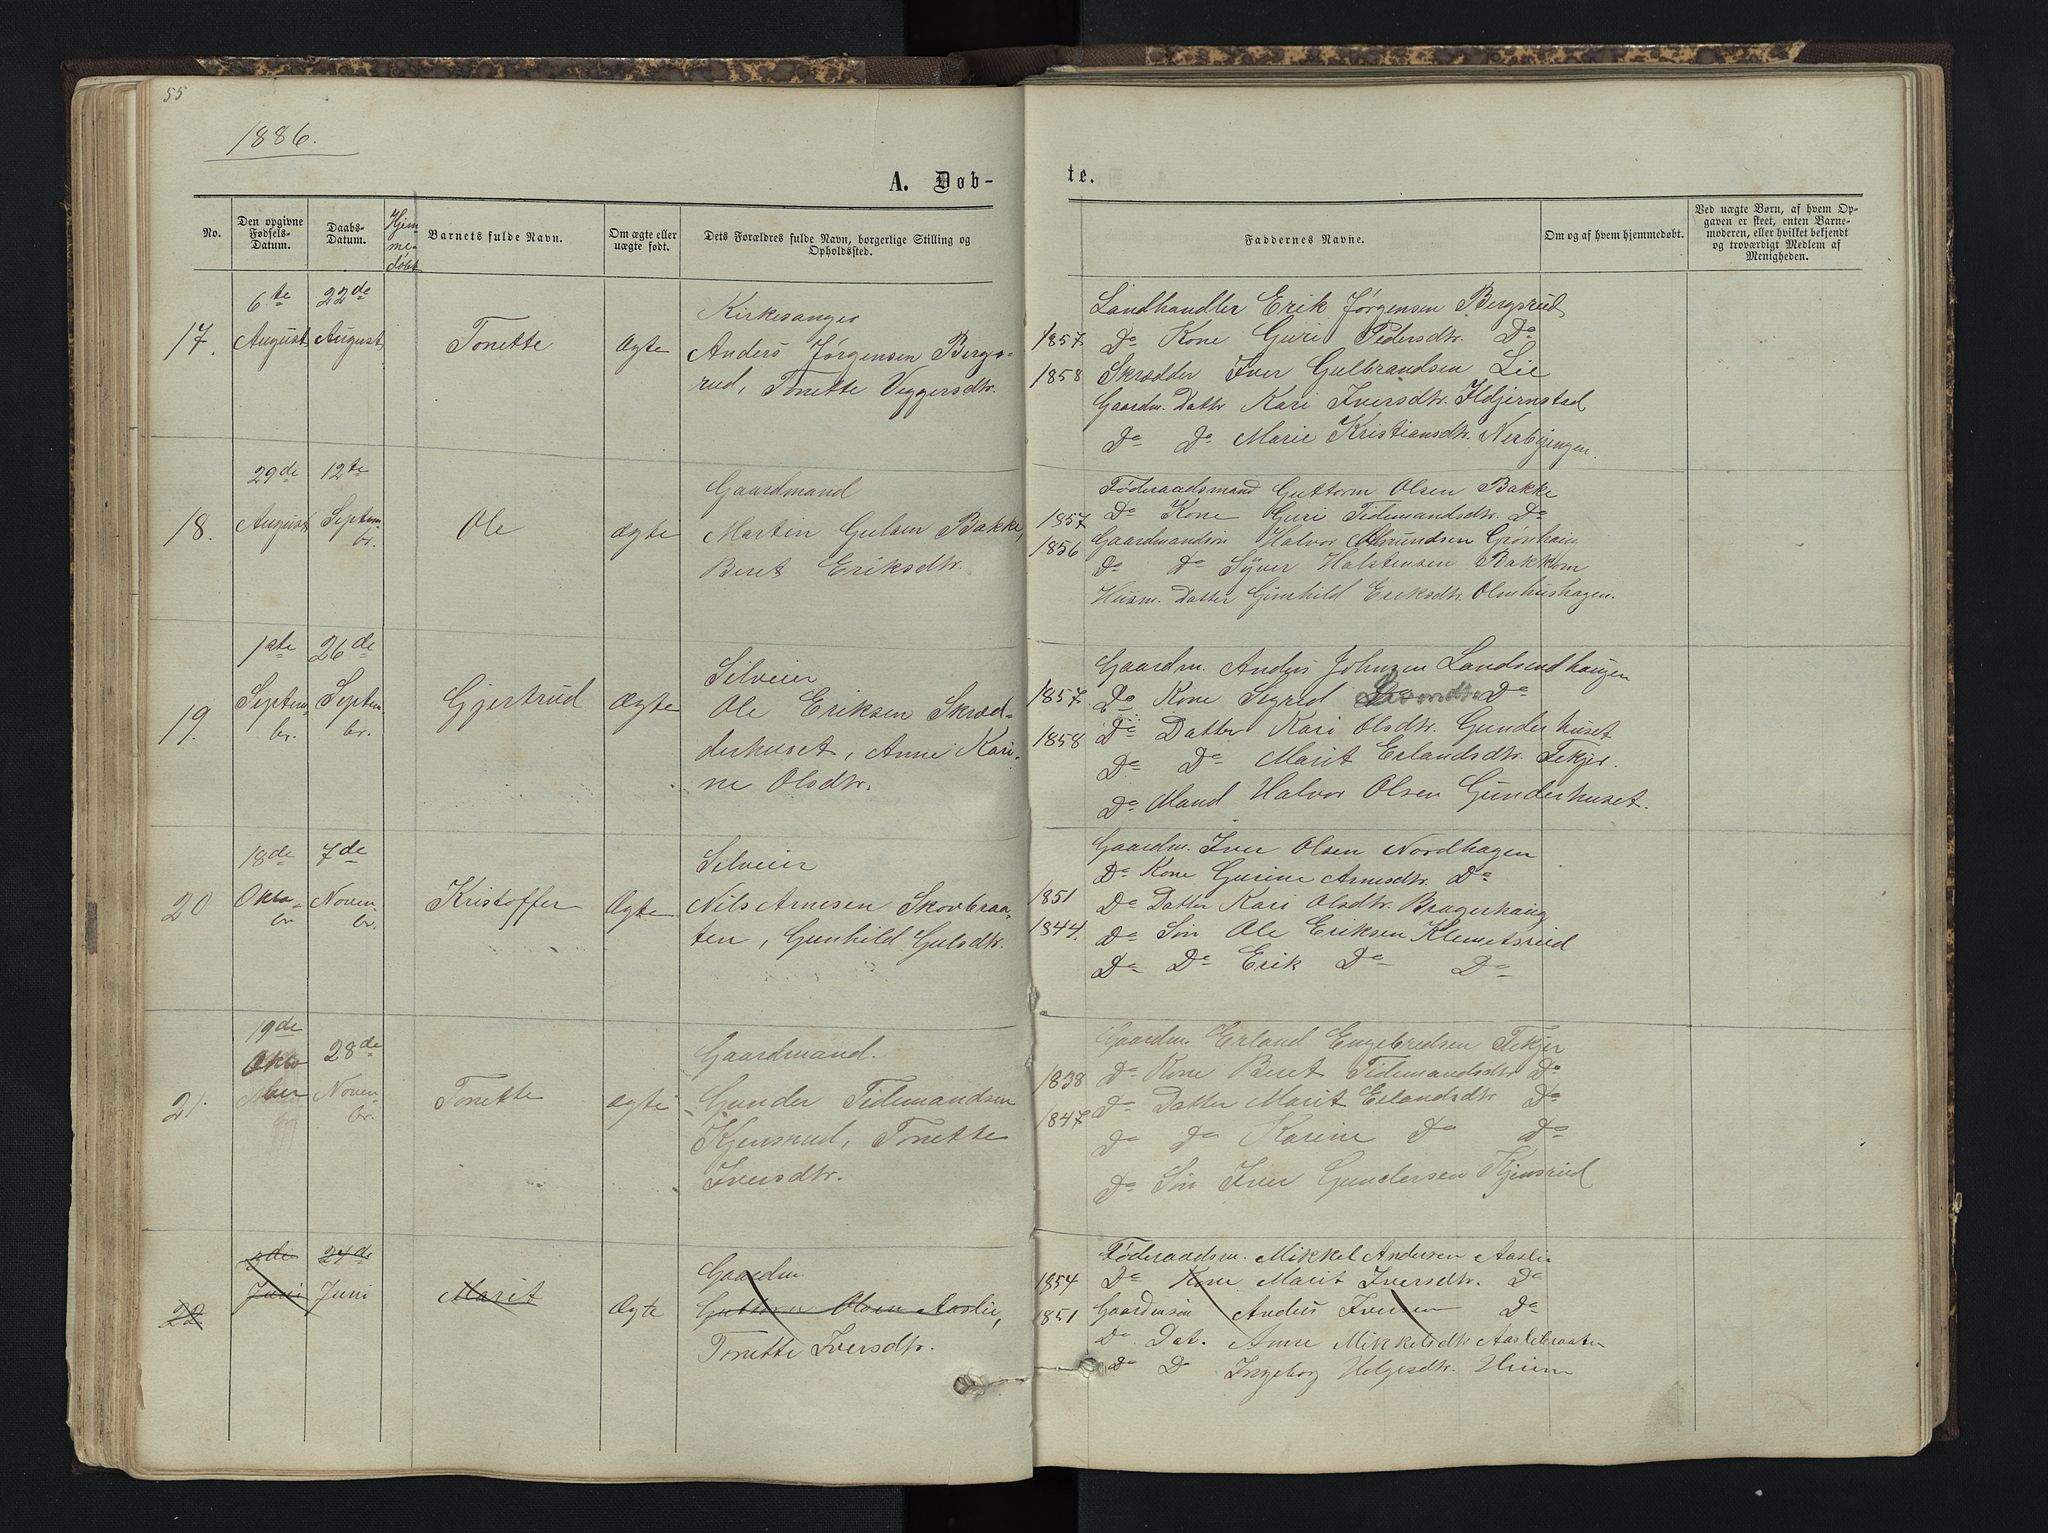 55
1886.
A. Døb-
No.
Den opgivne Fødsels-Datum.
Daabs-Datum.
Hjem-me-døbt
Barnets fulde Navn.
Om ægte eller uægte født.
Dets Forældres fulde Navn, borgerlige Stilling og Opholdssted.
17.
6te August
22de August
Tonette
Ægte
Kirkesanger
Anders Jørgensen Bergs-
rud, Tonette Viggersdtr.
18.
29de August
12te Septem-br.
Ole
Ægte
Gaardmand
Marten Gulsen Bakke,
Beret Eriksdtr.
19.
1ste Septem-br.
26de Septem-br.
Gjertrud
Ægte
Selveier
Ole Eriksen Skræd-
derhuset, Anne Kari-
ne Olsdtr.
20
18de Okto-br
7de Novem-br.
Kristoffer
Ægte
Selveier
Nils Arnesen Skovbraa-
ten, Gunhild Gulsdtr.
21.
19de Okto ber
28de Novem-br.
Tonette
Ægte
Gaardmand.
Gunder Tidemandsen
Kjensrud, Tonette
Iversdtr.
22
Juni
24de Juni
Marit
Ægte
Gaardm.
Guttorm Olsen Aaslie,
Tonette Iversdtr.
te.
Faddernes Navne.
Om og af hvem hjemmedøbt.
Ved uægte Børn, af hvem Op-
gaven er skeet, enten Barne-
moderen, eller hvilket bekjendt
og troværdigt Medlem af
Menigheden.
Landhandler Erik Jørgensen Bergsrud
1857 Do Kone Guri Pedersdtr. Do
1858 Skrædder Iver Gulbrandsen Lie
Gaardm. Dattr Kari Iversdtr. Hdjernstad
Do Do Marie Kristiansdtr. Nerbyengen.
Føderaadsmand Guttorm Olsen Bakke
1857 Do Kone Guri Tidemandsdtr. Do
1856 Gaardmandsøn Halvor Amundsen Grønhaug
Do Do Syver Halstensen Bakkom
Husm. Datter Gunhild Eriksdtr. Olmhushagen.
Gaardm. Anders Johnsen Landsendhaugen
1857 Do Kone Sigrid Do
1858 Do Datter Kari Olsdtr. Gunderhuset
Do Do Marit Erlandsdtr. Tekjer.
Do Mand Halvor Olsen Gunderhuset.
Gaardm. Iver Olsen Nordhagen
Do Kone Gurine Arnesdtr. Do
1851 Do Datter Kari Olsdtr. Bragerhaug
1844. Do Søn Ole Eriksen Klemetsrud
Do Do Erik Do Do
Gaardm. Erland Engebredsen Tekjer
1838 Do Kone Beret Tidemandsdtr Do
1847 Do Datter Marit Erlandsdtr Do
Do Do Karine Do Do
Do Søn Iver Gundersen Kjensrud
Føderaadsm. Mikkel Andersen Aaslie
1854 Do Kone Marit Iversdtr. Do
1851 Gaardmsøn Anders Iversen Do
Do Dat. Anne Mikkelsdtr Aasliebraaten
Do D Ingeborg Helgesdtr. Hiem